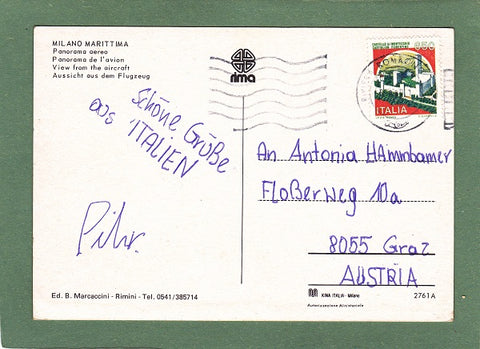 MILANO MARITTIMA
Panorama aereo
Panorama de l'avion
View from the aircraft
Aussicht aus dem Flugzeug
rima
850
ITALIA
schöne Grüße
aus ITALIEN
An Antonia Hammbamer
Floßerweg 10a
8055 Graz
AUSTRIA
Ed. B. Marcaccini - Rimini - Tel. 0541/385714
KINA ITALIA - Milano
2761A